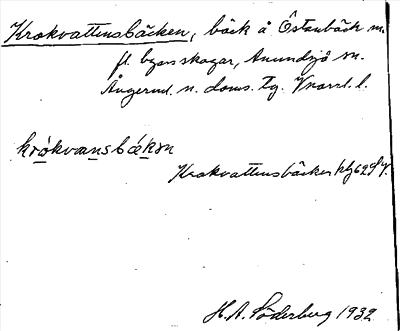 Krokvattensbäcken, bäck å Östanbäck m.
fl. byars skogar, Anundsjö sn.
Ångerml. n. doms. tg. Vnorrl. l.
krókvansbækɴ
Krokvattensbäcken
H. A. Söderberg 1932